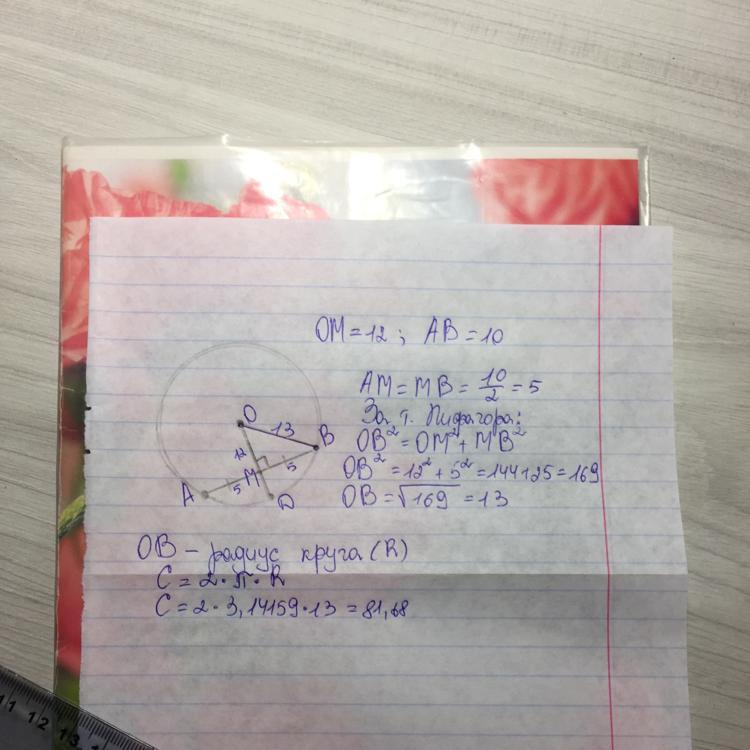 OM=12 ; AB=10
AM=MB=10/2=5
За т. Пифагора:
OB²=OM²+MB²
OB²=12²+5²=144+25=169
OB=√169=13
O
13
B
12
5
M
A
5
D
OB – радиус круга (R)
C=2·π·R
C=2·3,14159·13=81,68
11 12 13